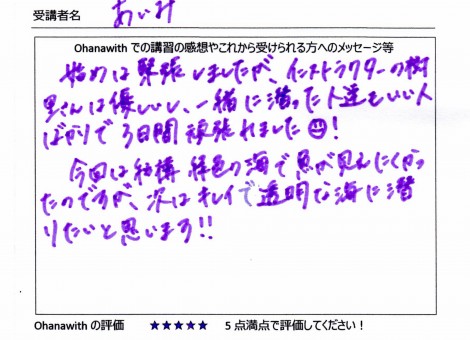 受講者名 あいみ
Ohanawith での講習の感想やこれから受けられる方へのメッセージ等
始めは緊張しましたが、インストラクターの樹
里さんは優しいし、一緒に潜った人達もいい人
ばかりで3日間頑張れました☺!
今回は結構緑色の海で魚が見えにくかっ
たのですが、次はキレイで透明な海に潜
りたいと思います!!
Ohanawith の評価 ★★★★★ 5 点満点で評価してください!